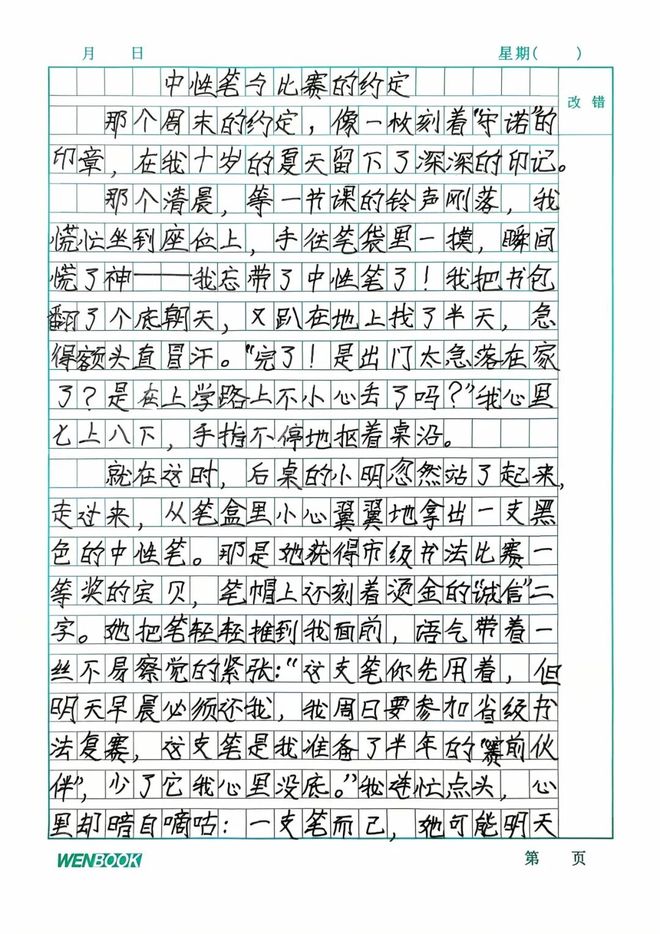 月 日 星期( )
中性笔与比赛的约定
改 错
那个周末的约定，像一枚刻着“守诺”的
印章，在我十岁的夏天留下了深深的印记。
那个清晨，第一节课的铃声刚落，我
慌忙坐到座位上，手往笔袋里一摸，瞬间
慌了神——我忘带了中性笔了！我把书包
翻了个底朝天，又趴在地上找了半天，急
得额头直冒汗。“完了！是出门太急落在家
了？是在上学路上不小心丢了吗？”我心里
七上八下，手指不停地抠着桌沿。
就在这时，后桌的小明忽然站了起来，
走过来，从笔盒里小心翼翼地拿出一支黑
色的中性笔。那是她获得市级书法比赛一
等奖的宝贝，笔帽上还刻着烫金的“诚信”二
字。她把笔轻轻推到我面前，语气带着一
丝不易察觉的紧张：“这支笔你先用着，但
明天早晨必须还我，我周日要参加省级书
法复赛，这支笔是我准备了半年的“赛前伙
伴”，少了它我心里没底。”我连忙点头，心
里却暗自嘀咕：一支笔而已，她可能明天
WENBOOK
第 页